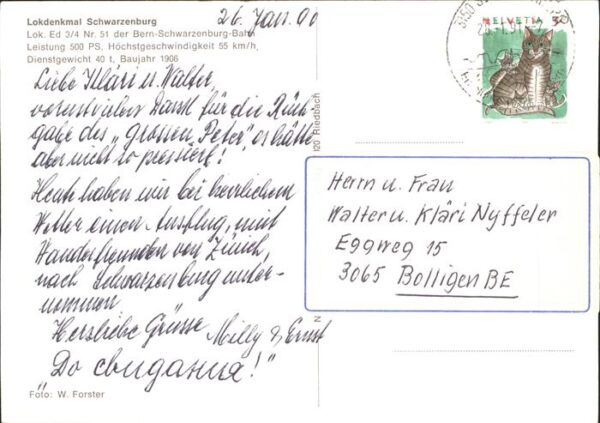 Lokdenkmal Schwarzenburg
Lok. Ed 3/4 Nr. 51 der Bern-Schwarzenburg-Bahn
Leistung 500 PS. Höchstgeschwindigkeit 55 km/h,
Dienstgewicht 40 t, Baujahr 1906
26. Jan.
Liebe Kläri u. Walter,
vorerst vielen Dank für die Rück-
gabe des "grossen Peter", es hätte
aber nicht so pressiert!
Heute haben wir bei herrlichem
Wetter einen Ausflug, mit
Wanderfreunden von Zürich,
nach Schwarzenburg unter-
nommen
Herzliche Grüsse Milly & Ernst
"До свидания!"
Foto: W. Forster
Riedbach
HELVETIA 50
3150
Herrn u. Frau
Walter u. Kläri Nyffeler
Eggweg 15
3065 Bolligen BE